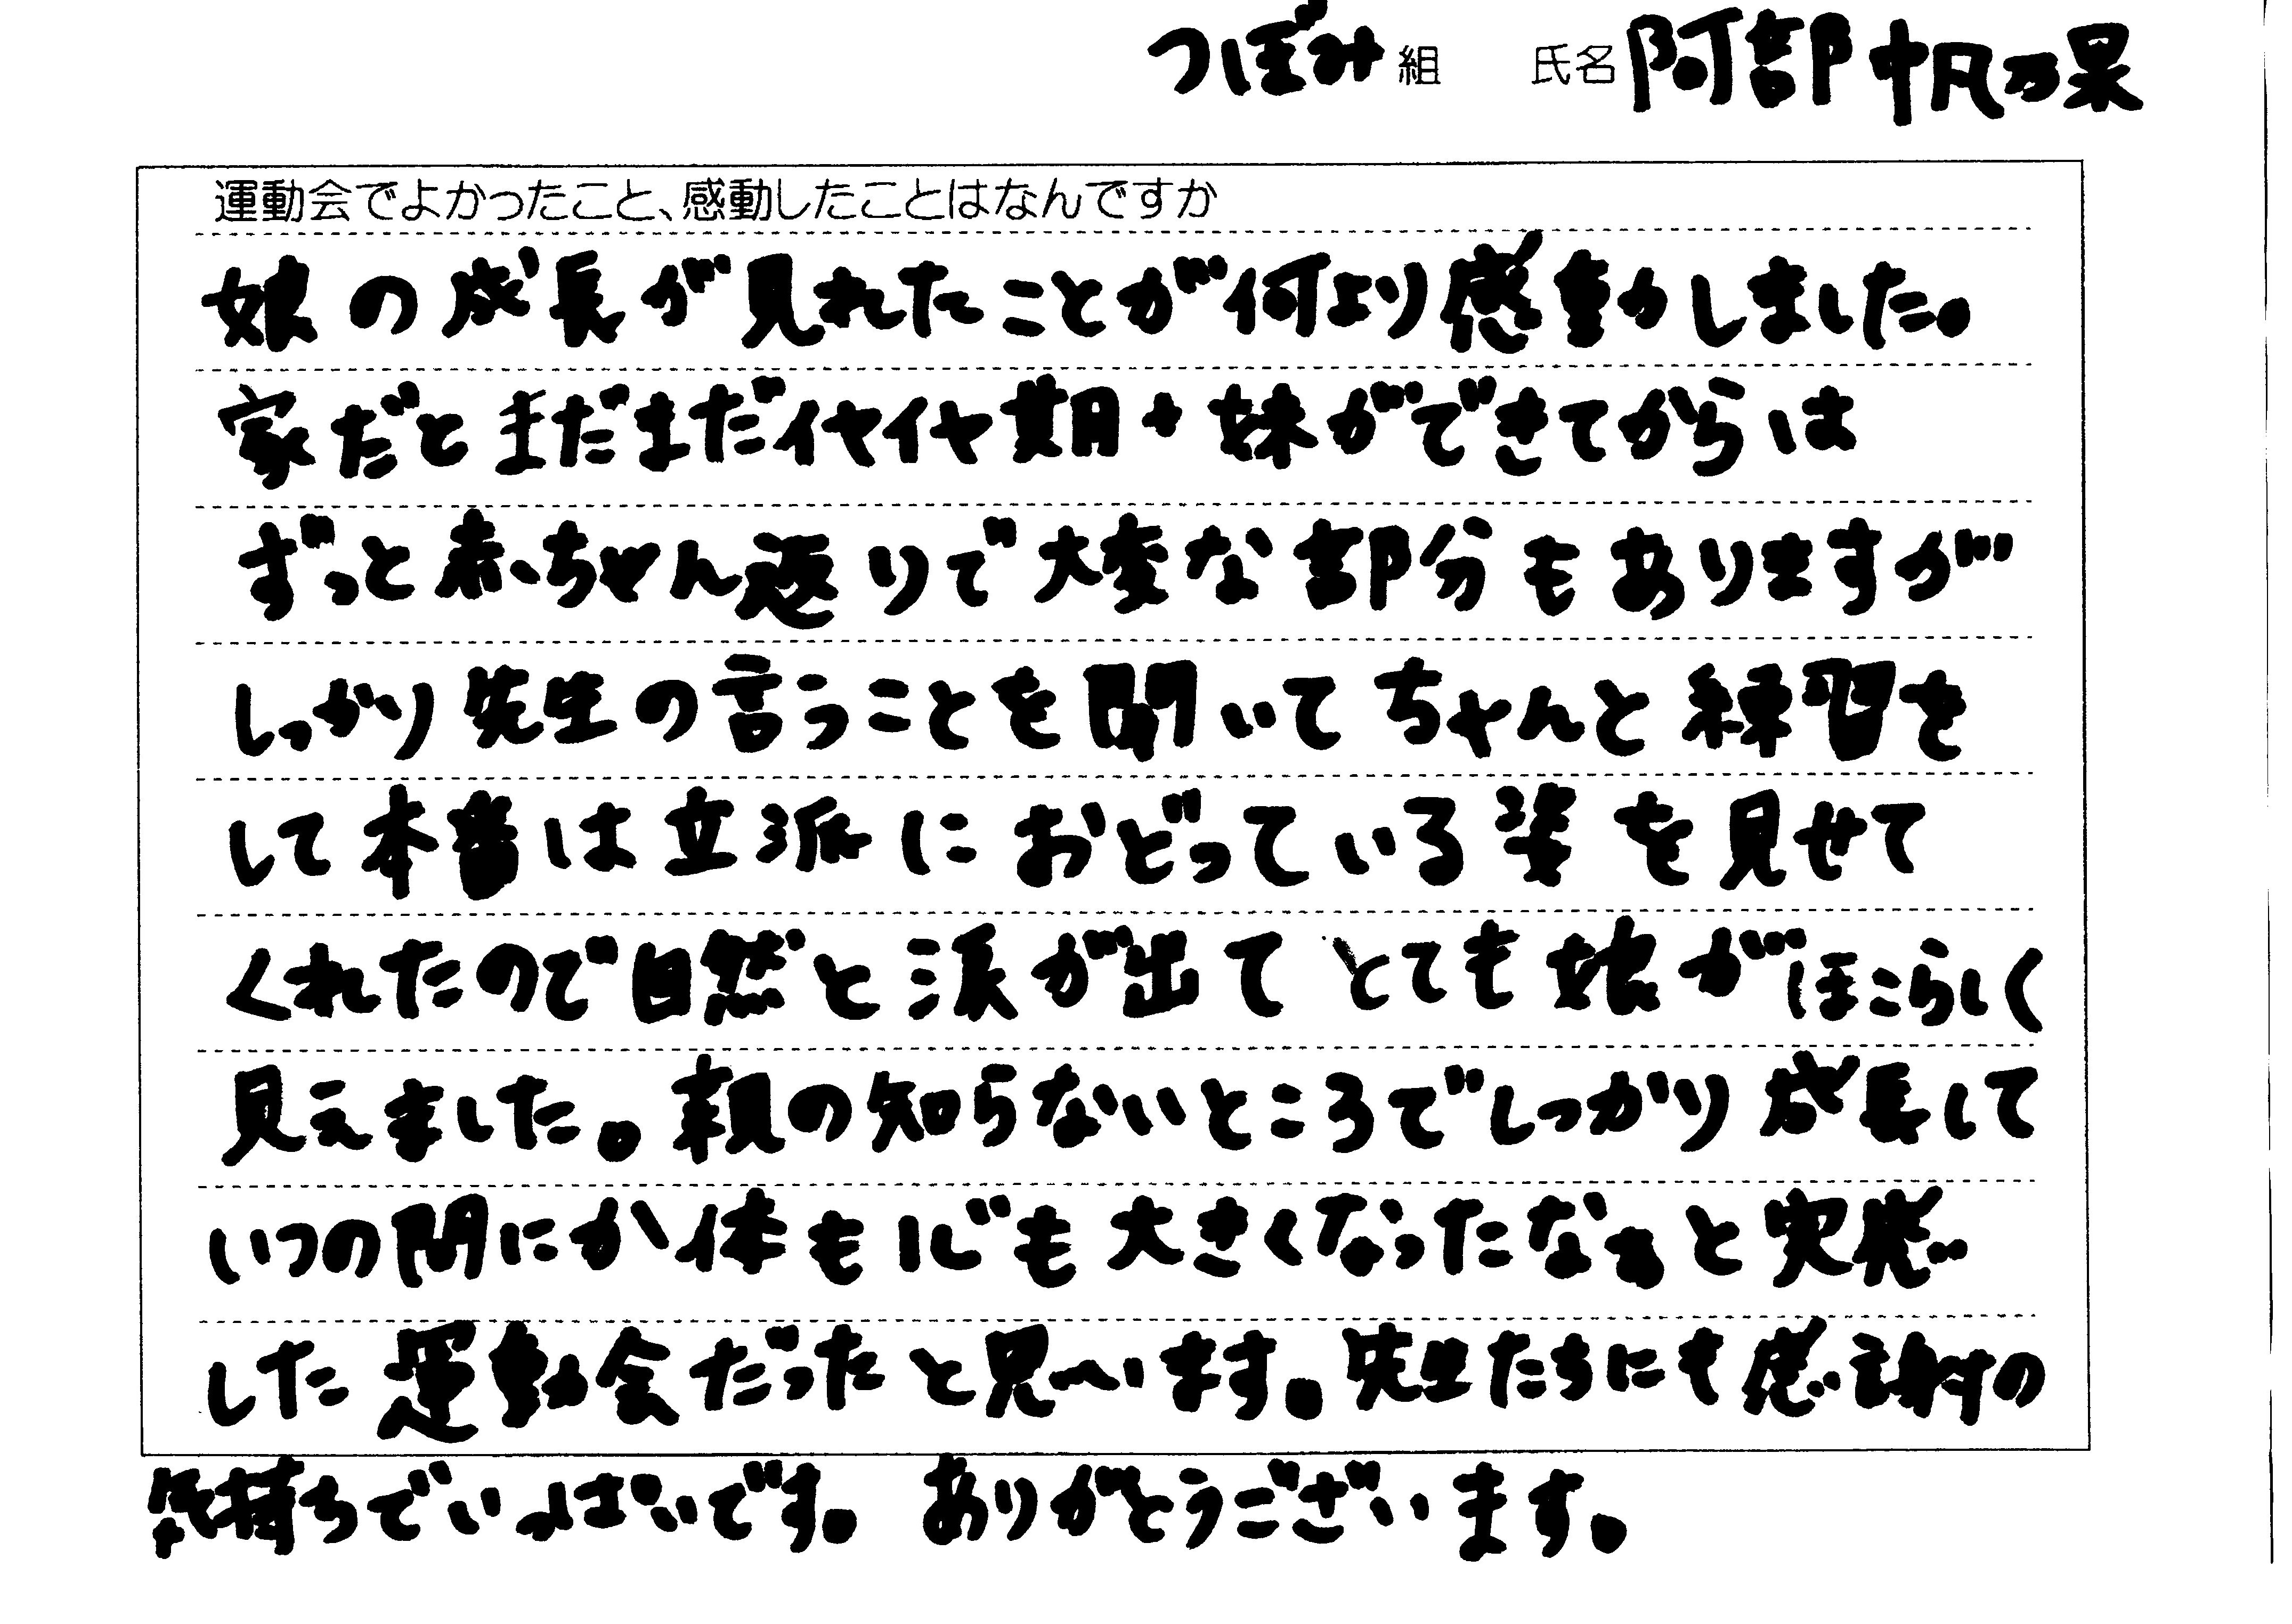 つぼみ組 氏名 阿部 帆乃果
運動会でよかったこと、感動したことはなんですか
娘の成長が見れたことが何より感動しました。
家だとまだまだイヤイヤ期+妹ができてからは
ずっと赤ちゃん返りで大変な部分もありますが
しっかり先生の言うことを聞いてちゃんと練習を
して本番は立派におどっている姿を見せて
くれたので自然と涙が出てとても娘がほこらしく
見えました。親の知らないところでしっかり成長して
いつの間にか体も心も大きくなったなぁと実感
した運動会だったと思います。先生たちにも感謝の
気持ちでいっぱいです。ありがとうございます。